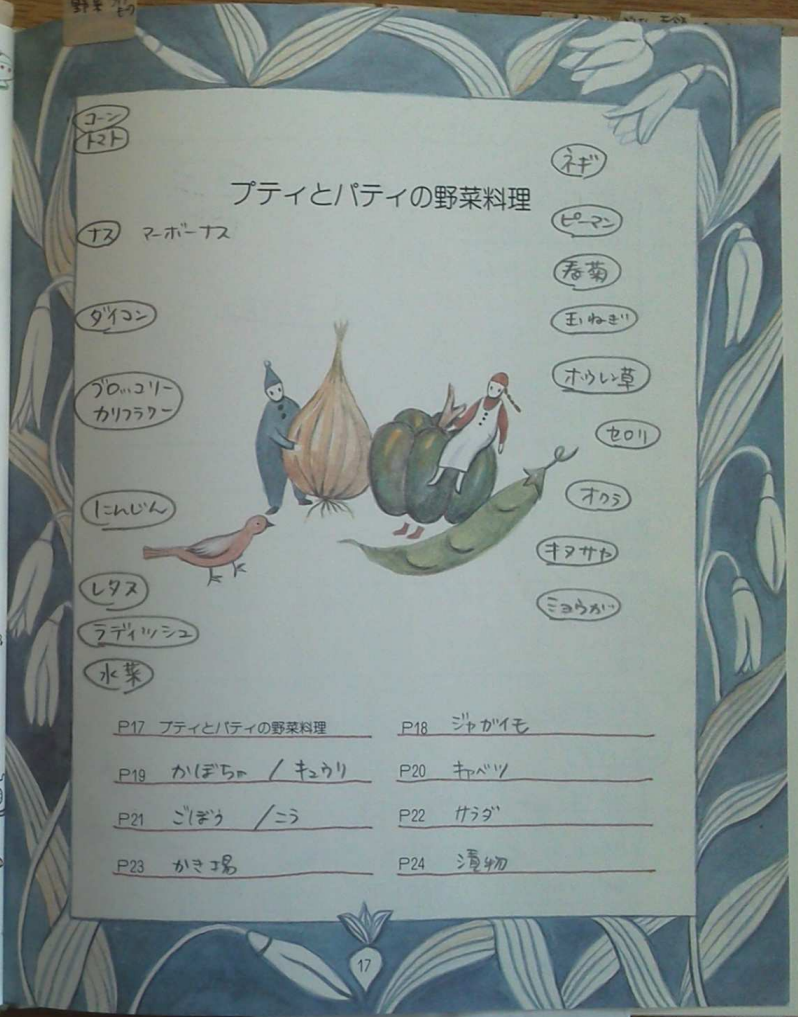 野菜
コーン
トマト
プティとパティの野菜料理
ナス マーボーナス
ダイコン
ブロッコリー
カリフラワー
にんじん
レタス
ラディッシュ
水菜
ネギ
ピーマン
春菊
玉ねぎ
ホウレン草
セロリ
オクラ
キヌサヤ
ミョウガ
P17 プティとパティの野菜料理
P18 ジャガイモ
P19 かぼちゃ / キュウリ
P20 キャベツ
P21 ごぼう / こう
P22 サラダ
P23 かき揚
P24 漬物
17